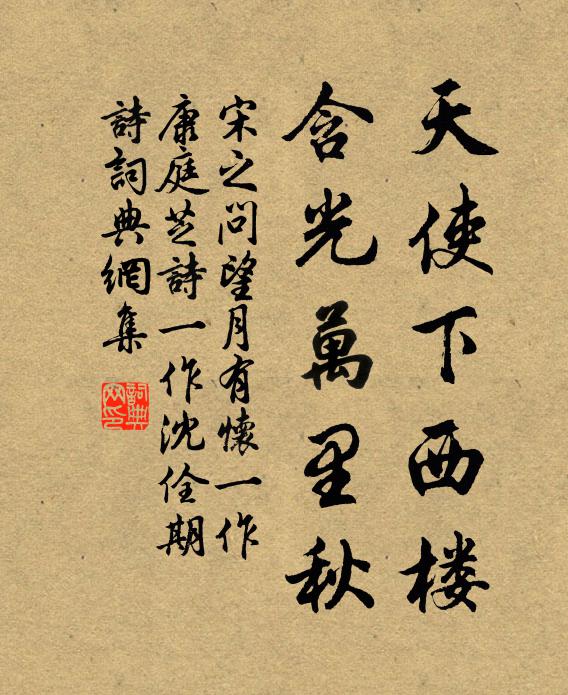 天使下西楼
含光萬里秋
宋之问望月有懷一作
康庭芝詩一作沈佺期
詩詞典網集
詞典网印